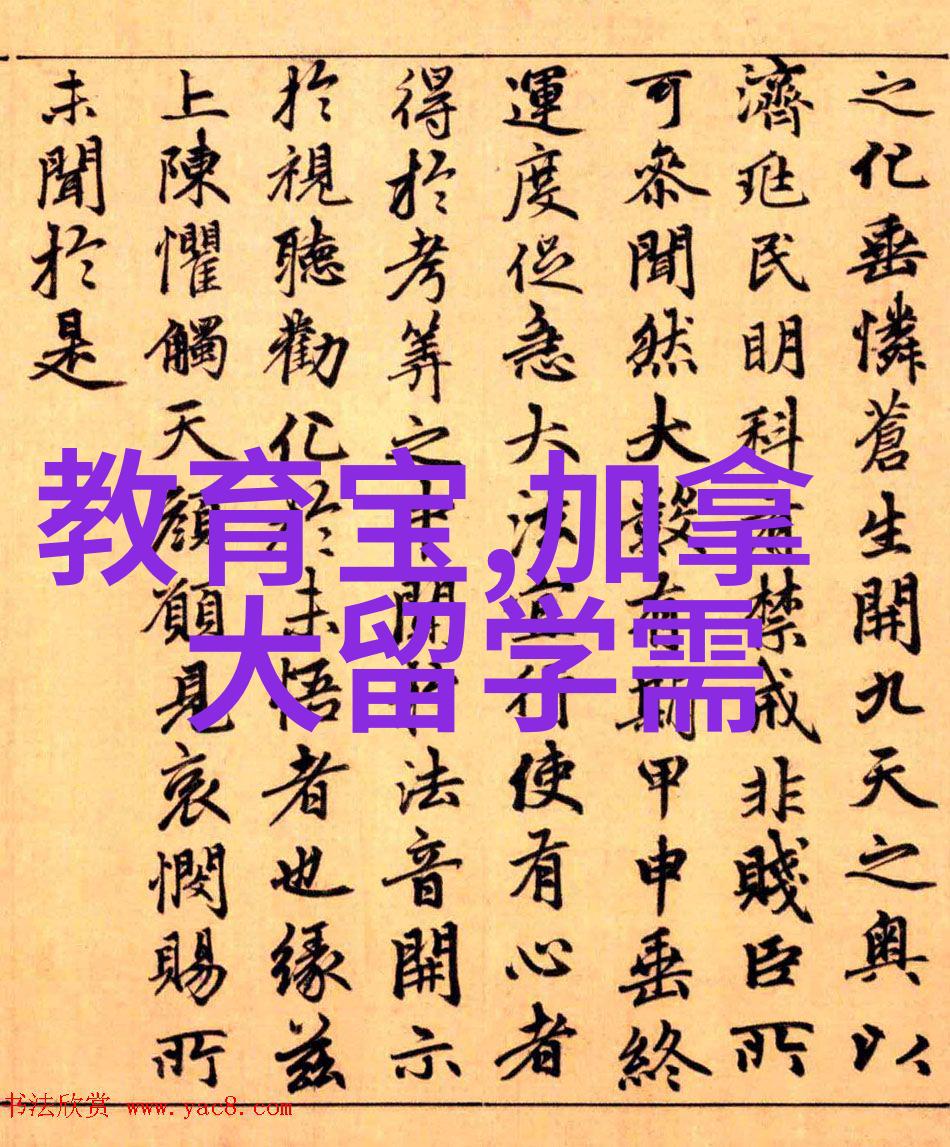 之化垂憐蒼生開九天之奧以
濟兆民明科禁戒非賤臣所
可叅聞然大數有期甲申垂終
運度促急大法宜行使有心者
得於考筭之開法音開示
於視聽勸化於未悟者也緣茲
上陳懼觸天顏願見哀憫賜所
未聞於是
教育宝,加拿
大留学需
书法欣赏 www.yac8.com